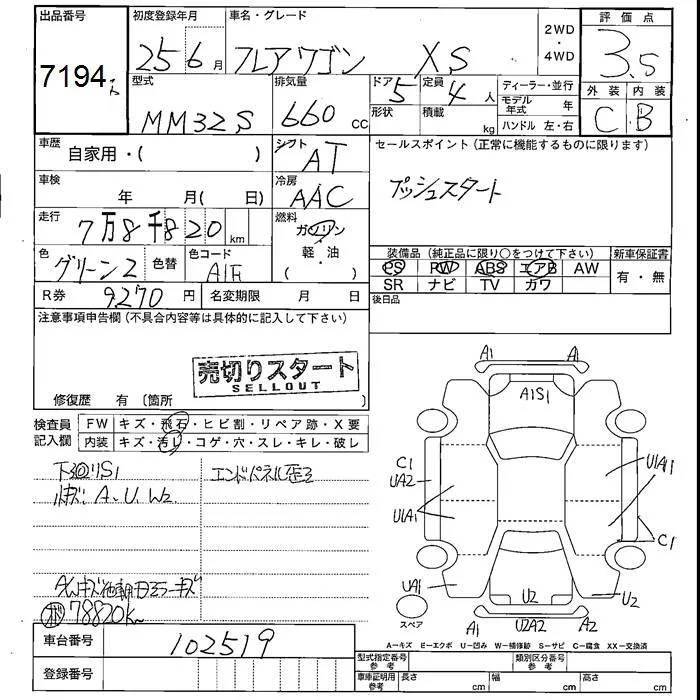 出品番号 初度登録年月 車名・グレード 2WD・4WD 評価点
7194 25年6月 フレアワゴン XS 3.5
型式 排気量 ドア形状 定員 ディーラー・並行 外装 内装
MM32S 660cc 5 4人 モデル年式 年 C B
積載 kg ハンドル 左・右
車歴 自家用・( ) シフト AT セールスポイント(正常に機能するものに限ります)
車検 年 月( 日) 冷房 AAC プッシュスタート
走行 7万8千820km 燃料 ガソリン・軽油 ( )
色 グリーン2 色替 色コード 装備品(純正品に限り○をつけて下さい) 新車保証書
PS PW ABS エアB AW 有・無
SR ナビ TV ガワ
R券 9270円 名変期限 月 日 後日品
注意事項申告欄(不具合内容等は具体的に記入して下さい)
売切りスタート
SELLOUT
修復歴 有(箇所
検査員記入欄 FW キズ・飛石・ヒビ割・リペア跡・X要
内装 キズ・汚レ・コゲ・穴・スレ・キレ・破レ
エンドパネル歪ミ
A.U.W2
78820km
A1 A1
A1S1
C1
UA2
U1A1
U1A1
C1
UA1
U2
U2
A1 U2A2 A2
スペア
A-キズ E-エクボ U-凹み W-補修跡 S-サビ C-腐食 XX-交換済
車台番号 102519
登録番号
型式指定番号参考 類別区分番号参考
車庫証明用参考 長さ cm 幅 cm 高さ cm